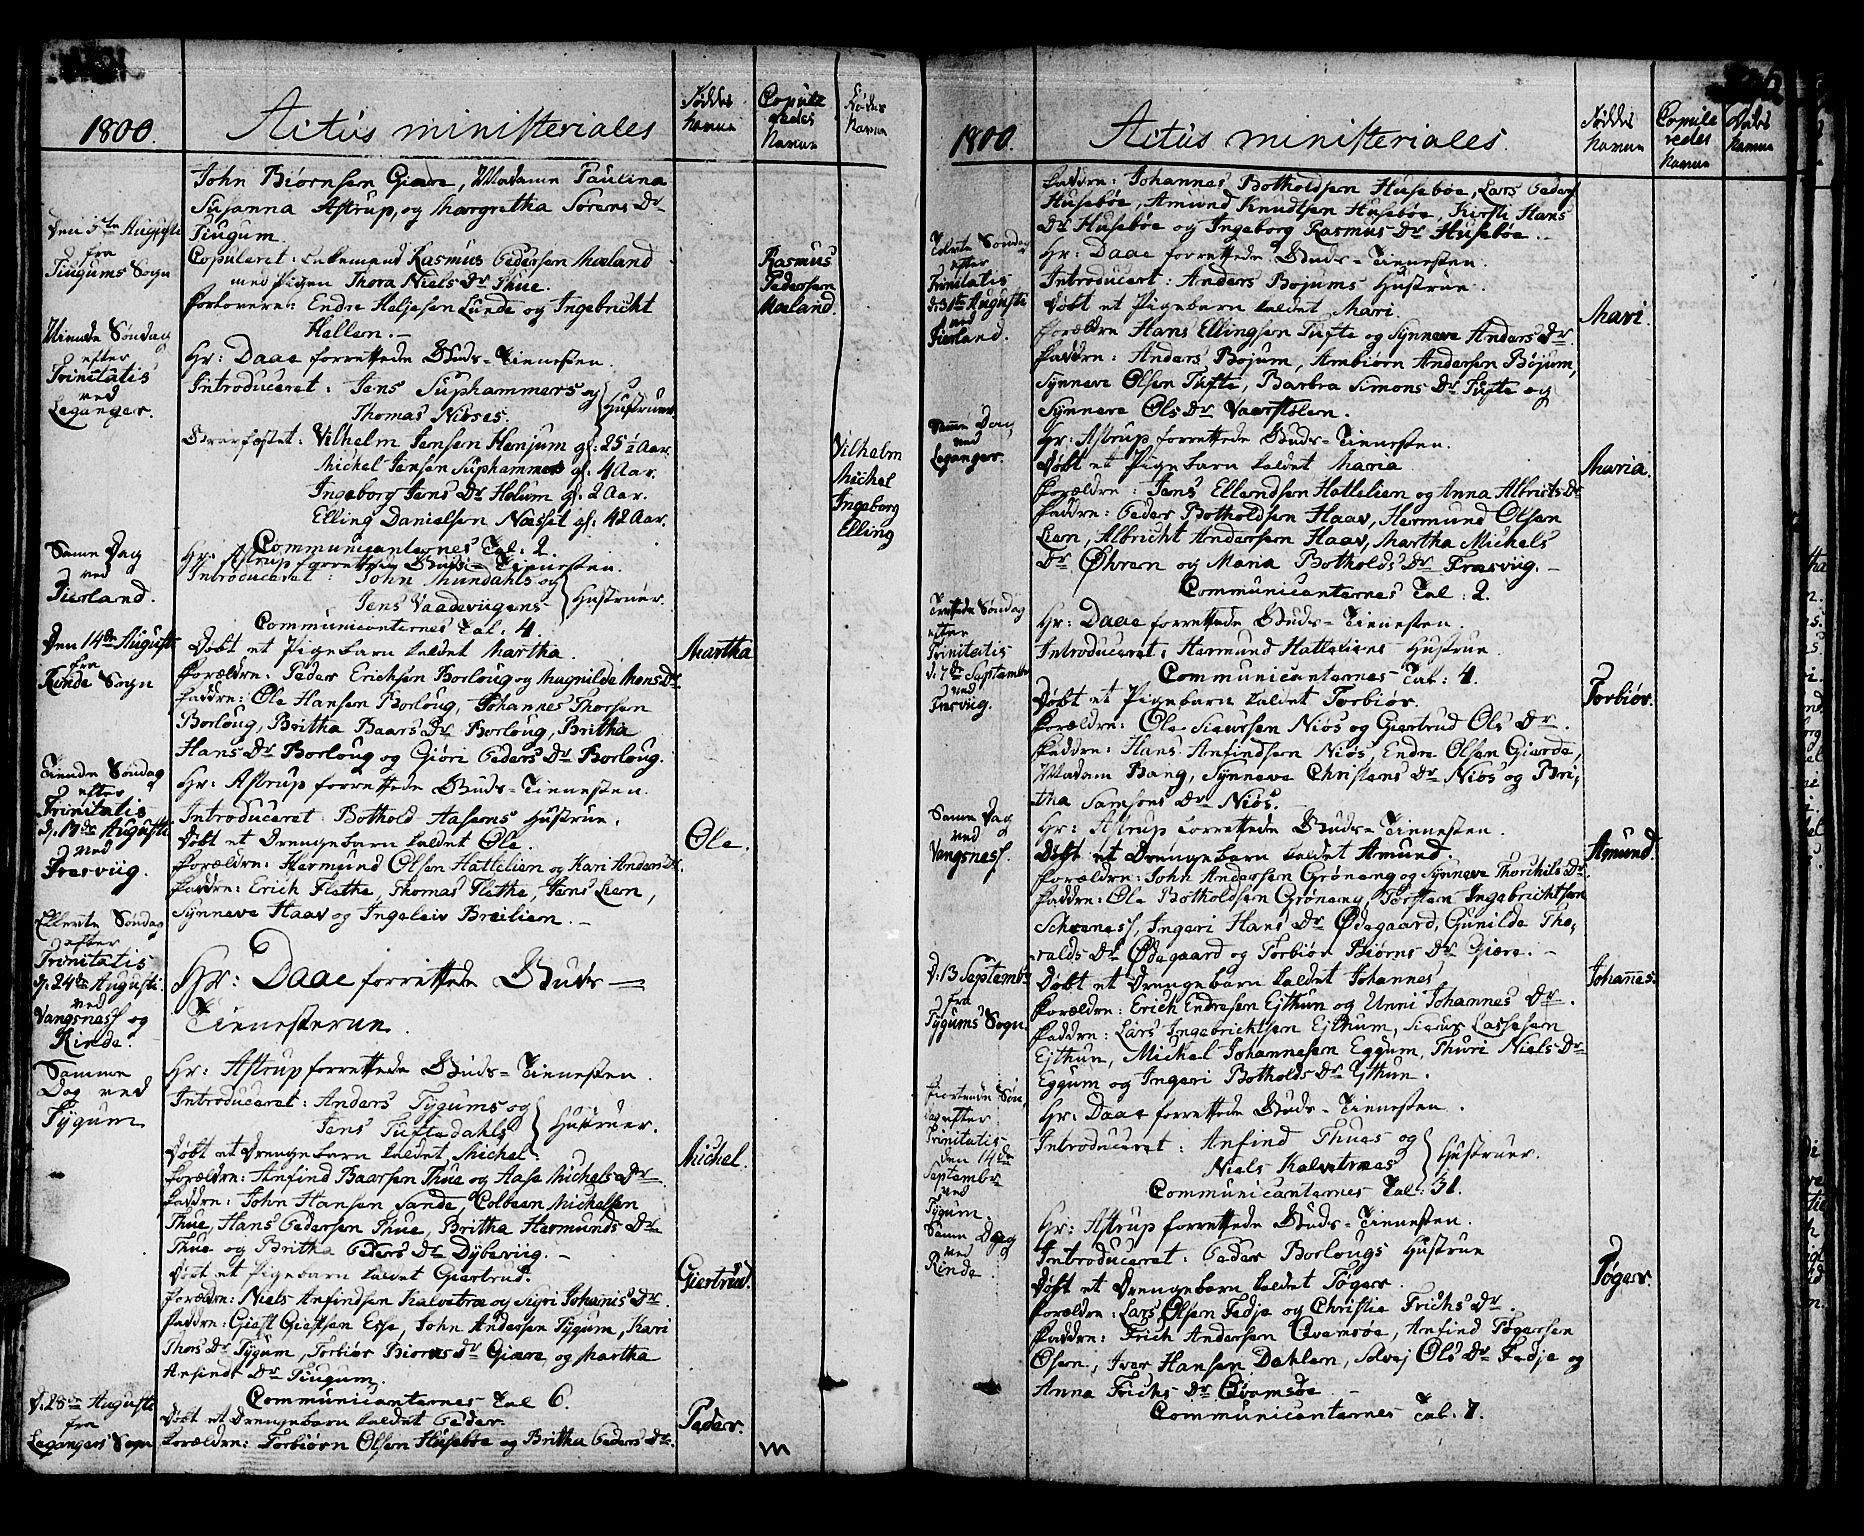 1800.
Actus ministeriales
Fødde
Navne
Copule
redes
Navne
Dødes
Navne
John Biørnsen Giære, Madame Paulina
Susanna Astrup, og Margretha Sørens Dr
Tiugum.
Den 5te Augusti
fra
Tiugums Sogn
Copuleret: Enkemand Rasmus Pedersen Mæland
med Pigen Thora Niels Dr Thue.
Forlovere: Endre Heljesen Lunde og Ingebricht
Hellem.
Rasmus
Pedersen
Mæland
Niende Søndag
efter
Trinitatis
ved
Leganger.
Hr: Daae forrettede Guds-Tienesten.
Introduceret: Jens Suphammers og
Thomas Niøses
Hustruer
Jordfæstet: Vilhelm Jensen Henjum gl: 25½ Aar.
Michel Jensen Suphammer gl: 4 Aar.
Ingeborg Jens Dr Helum gl: 2 Aar.
Elling Danielsen Næsset gl: 42 Aar.
Vilhelm
Michel
Ingeborg
Elling
Communicanternes Tal: 2.
Samme Dag
ved
Fierland.
Hr: Astrup forrettede Guds-Tienesten.
Introduceret: John Mundahls og
Jens Vaadeviigens
Hustruer.
Communicanternes Tal: 4.
Den 14de Augusti
fra
Rinde Sogn
Døbt et Pigebarn kaldet Martha.
Martha
Forældre: Peder Erichsen Borloug og Magnilde Mons Dr
Faddre: Ole Hansen Borloug, Johannes Thorsen
Borloug, Britha Baars Dr Borloug, Britha
Hans Dr Borloug og Giøri Peders Dr Borloug.
Tiende Søndag
efter
Trinitatis
d: 17de Augusti
ved
Fresviig.
Hr: Astrup forrettede Guds-Tienesten.
Introduceret Bothold Aasens Hustrue.
Døbt et Drengebarn kaldet Ole.
Ole.
Forældre: Hermund Olsen Hattelien og Kari Anders Dr.
Faddre: Erich Flethe, Thomas Flethe, Jens Lien,
Synneve Haav og Ingeleiv Breilien.
Ellevte Søndag
efter
Trinitatis
d: 24de Augusti
ved
Vangsness og
Rinde.
Hr: Daae forrettede Guds-
Tienesterne.
Samme
Dag ved
Tygum
Hr: Astrup forrettede Guds-Tienesten.
Introduceret: Anders Tygums og
Jens Tuftedahls
Hustruer.
Døbt et Drengebarn kaldet Michel.
Michel.
Forældre: Anfind Baarsen Thue og Aase Michels Dr
Faddre: John Hansen Sande, Colbeen Michelsen
Thue, Hans Pedersen Thue, Britha Hermunds Dr
Thue og Britha Peders Dr Dybeviig.
Døbt et Pigebarn kaldet Giertrud.
Giertrud.
Forældre: Niels Anfindsen Kalvetræ og Sigri Johanis Dr.
Faddre: Giest Giestsen Esse, John Andersen Tygum, Kari
Thors Dr Tygum, Torbiør Biørns Dr Giære og Martha
Anfinds Dr Tiugum.
Communicanternes Tal 6.
d. 28de Augusti
fra
Legangers Sogn
Døbt et Drengebarn kaldet Peder.
Peder.
Forældre: Torbiørn Olsen Husebøe og Britha Peders Dr.
1800.
Actus ministeriales.
Fødde
Navne
Copule
redes
Navne
Dødes
Navne
Faddre: Johannes Botholdsen Husebøe, Lars Peders
Husebøe, Amund Knudtsen Husebøe, Kirsti Hans
Dr Husebøe og Ingeborg Rasmus Dr Husebøe.
Tolvte Søndag
efter
Trinitatis
d: 31te Augusti
ved
Fierland.
Hr: Daae forrettede Guds-Tienesten.
Introducert: Anders Bojums Hustrue.
Døbt et Pigebarn kaldet Mari.
Mari.
Forældre Hans Ellingsen Tufte og Synneve Anders Dr.
Faddre: Anders Bojum, Ambiørn Andersen Bojum,
Synneve Olsen Tufte, Barbra Simons Dr Tufte og
Synneve Ols Dr Vaarstølen.
Samme Dag
ved
Leganger.
Hr: Astrup forrettede Guds-Tienesten.
Døbt et Pigebarn kaldet Maria
Maria.
Forældre: Jens Ellendsen Hattelien og Anna Albrits Dr
Faddre: Peder Botholdsen Haav, Hermund Olsen
Lien, Albricht Andersen Haav, Martha Michels
Dr Øhren og Maria Botholds Dr Fresviig.
Communicanternes Tal: 2.
Trettende Søndag
efter
Trinitatis
d: 7de Septembr
ved
Fresviig.
Hr: Daae forrettede Guds-Tienesten.
Introduceret: Hermund Hatteliens Hustrue.
Communicanternes Tal: 4.
Døbt et Pigebarn kaldet Torbiør.
Torbiør.
Forældre: Ole Siursen Niøs og Giertrud Ols Dr.
Faddre: Hans Anfindsen Niøs, Endre Olsen Gierde,
Madam Bang, Synneve Christens Dr Niøs og Bri,
tha Samsons Dr Niøs.
Samme Dag
ved
Vangsness.
Hr: Astrup forrettede Guds-Tienesten.
Døbt et Drengebarn kaldet Amund.
Amund.
Forældre: John Andersen Grøneng og Synneve Thorchils Dr.
Faddre: Ole Botholdsen Grøneng, Torsten Ingebrichtsen
Schreness, Ingeri Hans Dr Ødegaard, Gunilda Tho,
ralds Dr Ødegaard og Torbiør Biørns Dr Giære.
d: 13 Septembr
fra
Tygums Sogn.
Døbt et Drengebarn kaldet Johannes
Johannes.
Forældre: Erich Endresen Ejthun og Unni Johannes Dr.
Faddre: Lars Ingebrichtsen Ejthum, Siur Lassesen
Ejthun, Michel Johannesen Eggum, Thuri Niels Dr
Eggum og Ingeri Botholds Dr Ythun.
Fiortende Søn,
dag efter
Trinitatis
den 14de
Septembr
ved
Tygum.
Hr: Daae forrettede Guds-Tienesten.
Introduceret: Anfind Thues og
Niels Kalvetræs
Hustruer.
Communicanternes Tal: 31.
Samme Dag
ved
Rinde.
Hr: Astrup forrettede Guds-Tienesten.
Introduceret: Peder Borlougs Hustrue
Døbt et Drengebarn kaldet Tøger.
Tøger.
Forældre: Lars Olsen Fedje og Christie Erichs Dr.
Faddre: Erich Andersen Qvamsøe, Anfind Tøgersen
Øsen, Iver Hansen Dahlen, Solvej Ols Dr Fedje og
Anna Erichs Dr Qvamsøe.
Communicanternes Tal: 7.